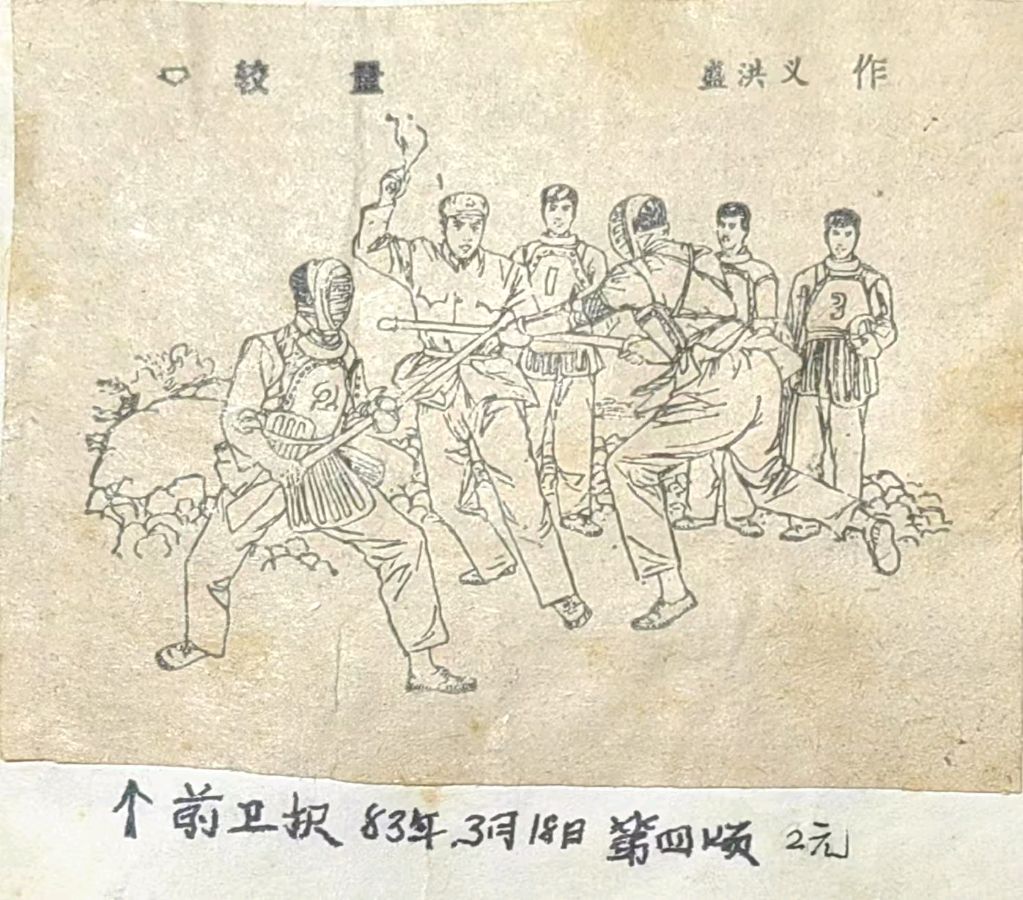 较 量 盛洪义 作
1
2
3
↑ 前卫报 83年.3月18日 第四 2元